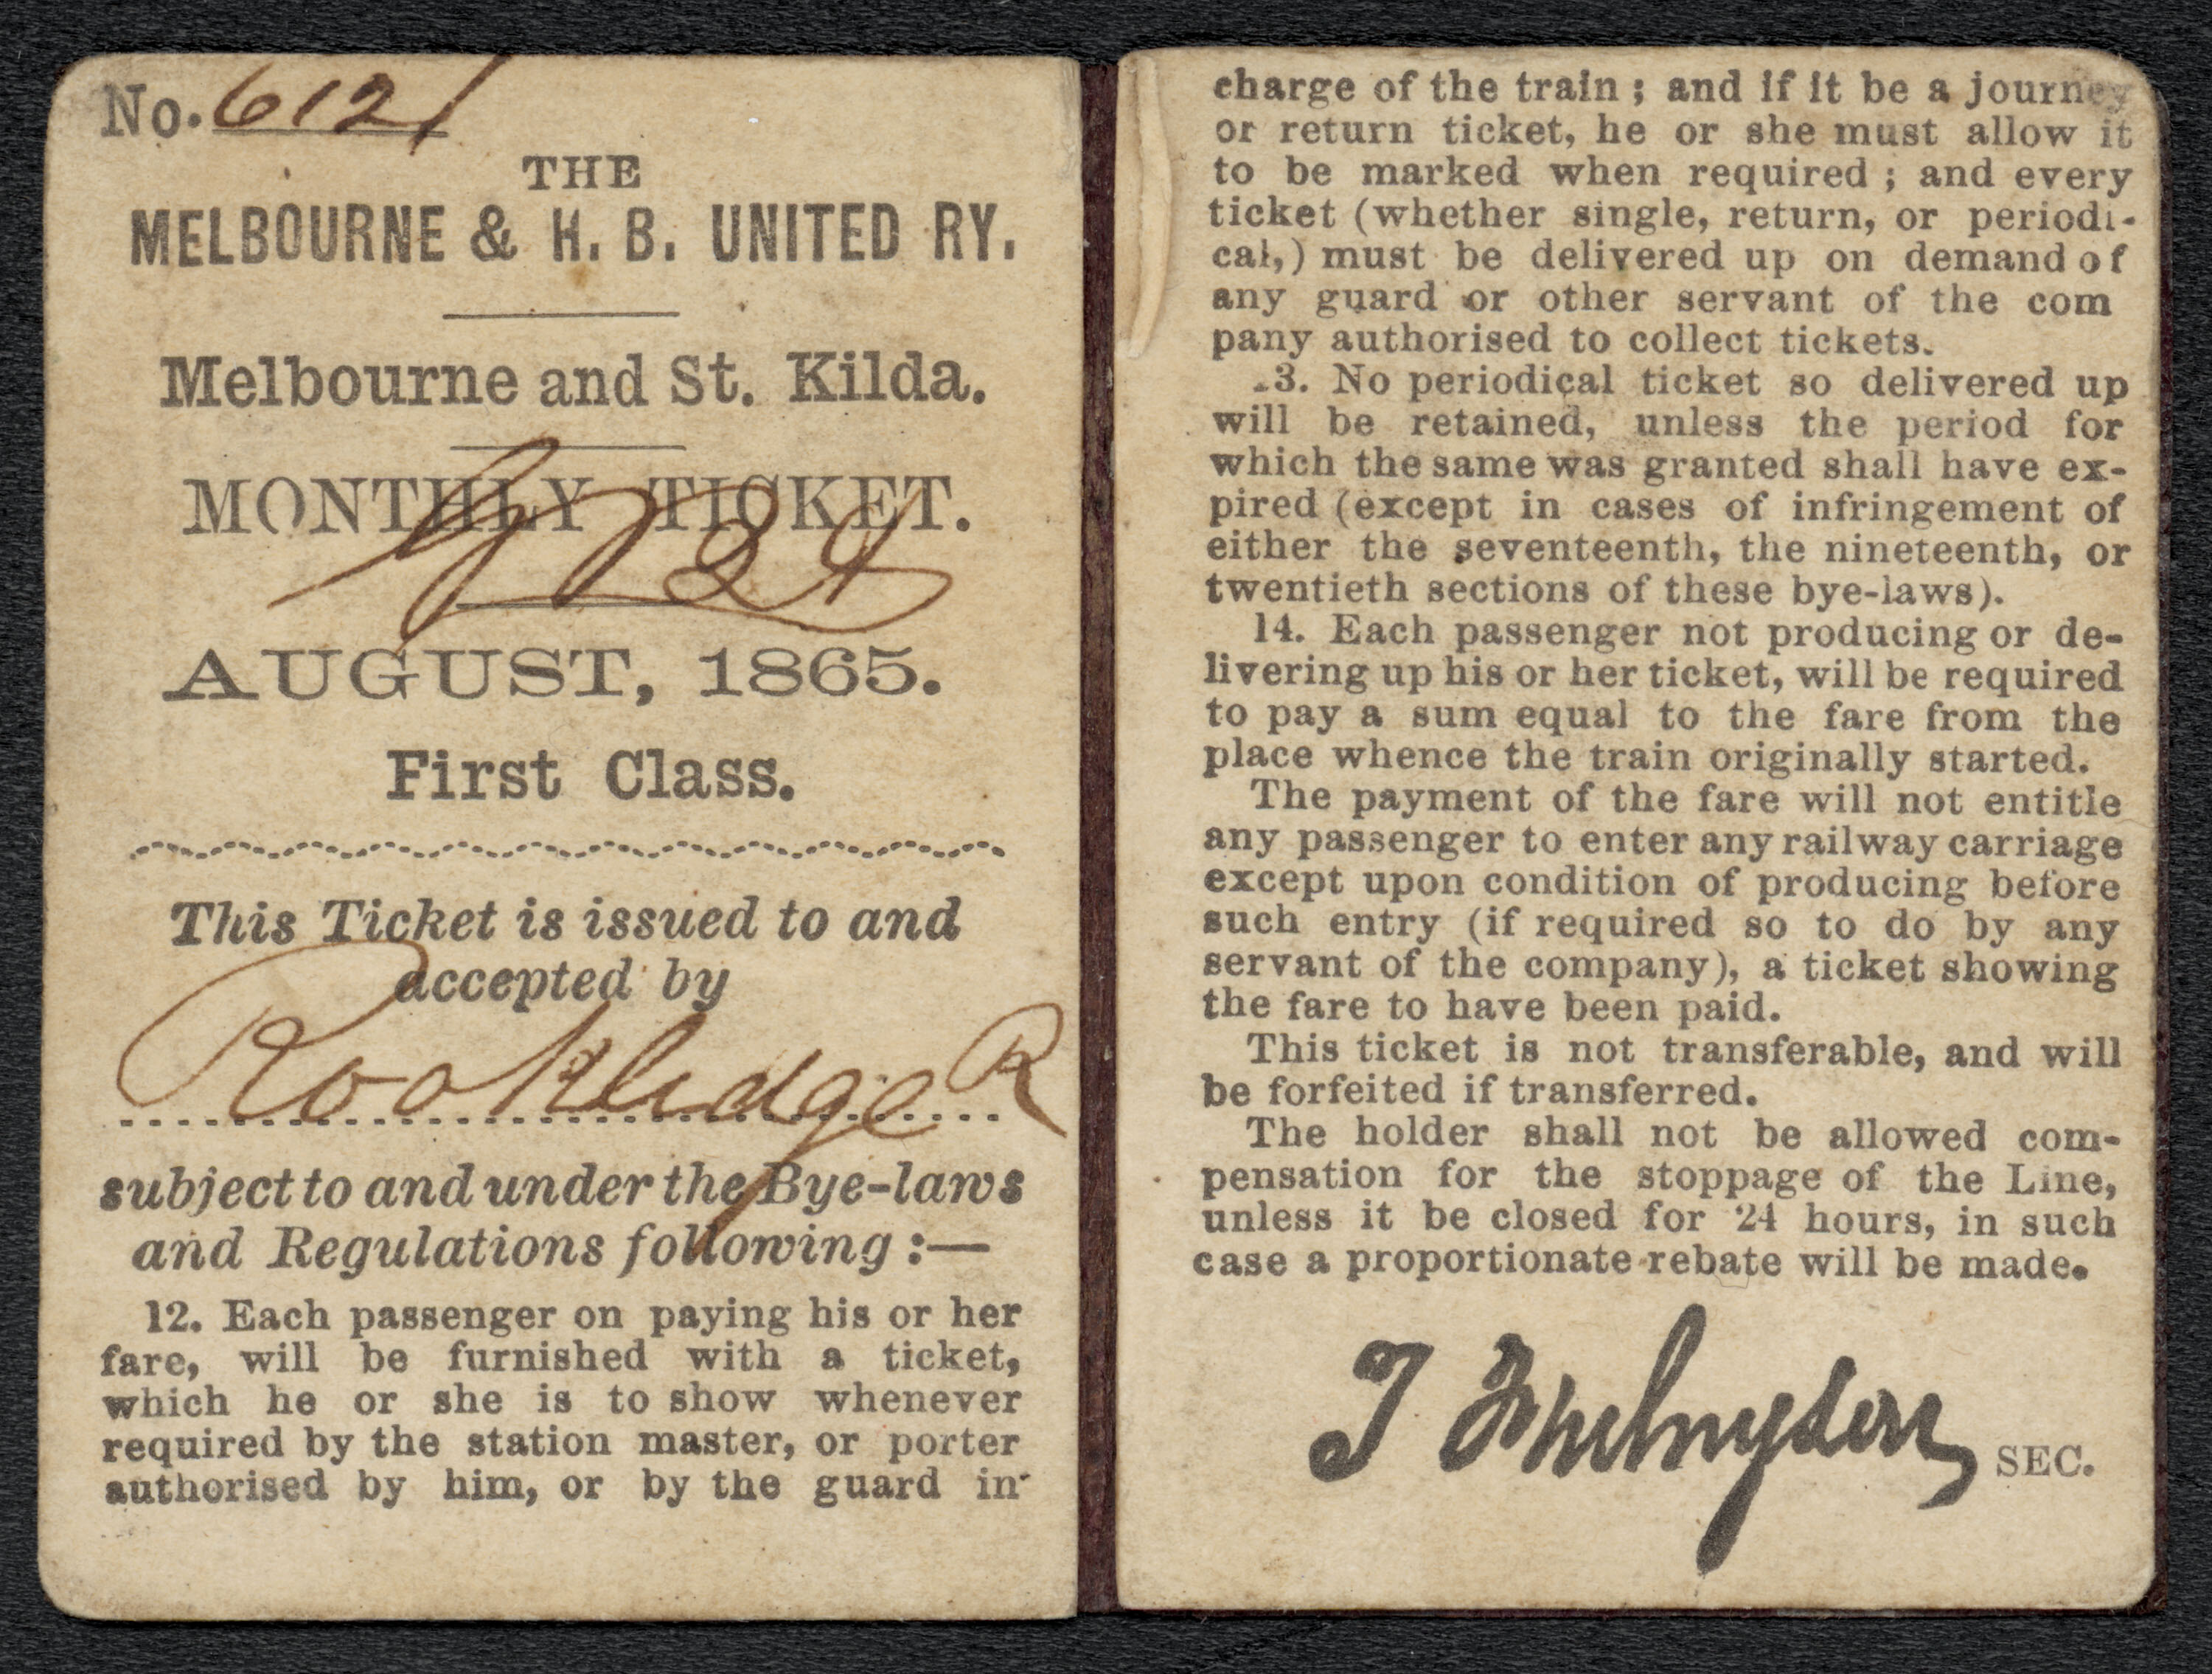 No. 6121
THE
MELBOURNE & H. B. UNITED RY.
Melbourne and St. Kilda.
MONTHLY TICKET.
AUGUST, 1865.
First Class.
This Ticket is issued to and
accepted by
Rookledge R
subject to and under the Bye-laws
and Regulations following :—
12. Each passenger on paying his or her
fare, will be furnished with a ticket,
which he or she is to show whenever
required by the station master, or porter
authorised by him, or by the guard in
charge of the train ; and if it be a journey
or return ticket, he or she must allow it
to be marked when required ; and every
ticket (whether single, return, or periodi-
cal,) must be delivered up on demand of
any guard or other servant of the com
pany authorised to collect tickets.
.3. No periodical ticket so delivered up
will be retained, unless the period for
which the same was granted shall have ex-
pired (except in cases of infringement of
either the seventeenth, the nineteenth, or
twentieth sections of these bye-laws).
14. Each passenger not producing or de-
livering up his or her ticket, will be required
to pay a sum equal to the fare from the
place whence the train originally started.
The payment of the fare will not entitle
any passenger to enter any railway carriage
except upon condition of producing before
such entry (if required so to do by any
servant of the company), a ticket showing
the fare to have been paid.
This ticket is not transferable, and will
be forfeited if transferred.
The holder shall not be allowed com-
pensation for the stoppage of the Line,
unless it be closed for 24 hours, in such
case a proportionate rebate will be made.
T SEC.